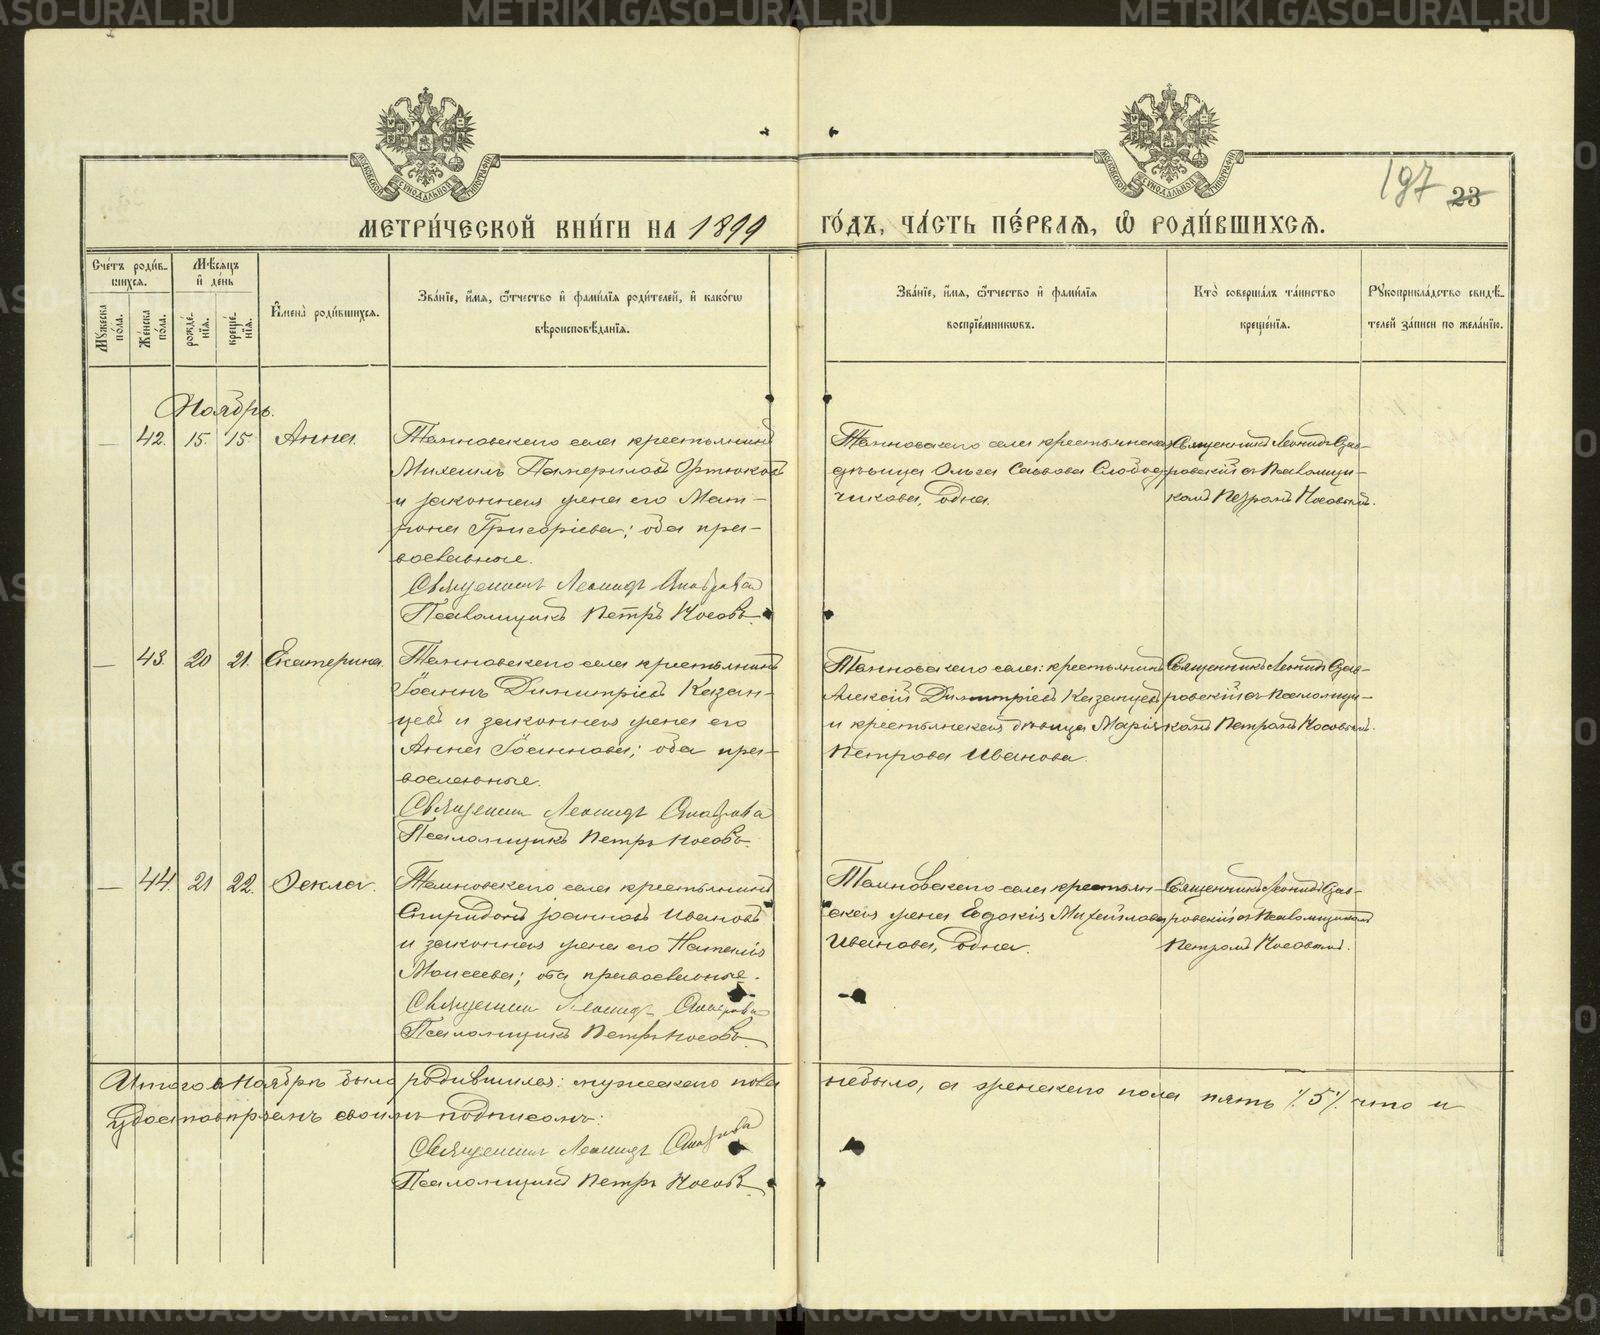 МЕТРИ́ЧЕСКОЙ КНИ́ГИ НА 1899
ГО́ДЪ, ЧА́СТЬ ПЕ́РВАѦ, Ѡ҆ РОДИ́ВШИХСѦ.
197 23
Сче́тъ роди́в-
шихся.
Мѣ́сяцъ
и҆ де́нь
Му́жеска
по́ла.
Же́нска
по́ла.
рожде́-
нїя.
креще́-
нїя.
И҆мена̀ роди́вшихся.
Зва́нїе, и҆́мя, ѻ҆́тчество и҆ фами́лїя роди́телей, и҆ како́гѡ
вѣроисповѣ́данїя.
Зва́нїе, и҆́мя, ѻ҆́тчество и҆ фами́лїя
воспрїе́мникѡвъ.
Кто̀ соверша́лъ та́инство
креще́нїя.
Рꙋкоприкла́дство свидѣ́-
телей за́писи по жела́нїю.
Ноябрь.
— 42. 15. 15. Анна.
крестьянинъ
Михаилъ
и законная жена его Мат-
рона Григоріева; оба пра-
вославные.
Священникъ Леонидъ
Псаломщикъ Петръ Носовъ.
села крестьянская
дѣвица Ольга Саввова Слобод-
чикова, одна.
Священникъ Леонидъ
съ Псаломщи-
комъ Петромъ Носовымъ.
— 43. 20 21. Екатерина.
села крестьянинъ
Іоаннъ Димитріевъ Казан-
цевъ и законная жена его
Анна Іоаннова; оба пра-
вославные.
Священникъ Леонидъ
Псаломщикъ Петръ Носовъ.
села: крестьянинъ
Алексій Димитріевъ Казанцевъ
и крестьянская дѣвица Марія
Петрова Иванова.
Священникъ Леонидъ
съ Псаломщи-
комъ Петромъ Носовымъ.
— 44. 21 22. Ѳекла.
села крестьянинъ
Спиридонъ Іоанновъ Ивановъ
и законная жена его Наталія
Моисеева; оба православные.
Священникъ Леонидъ
Псаломщикъ Петръ Носовъ.
села крестьян-
ская жена Евдокія Михайлова
Иванова, одна.
Священникъ Леонидъ
съ Псаломщикомъ
Петромъ Носовымъ.
Итого въ Ноябрѣ было родившихся: мужескаго пола небыло, а женскаго пола пять /.5/. что и
удостовѣряемъ своимъ подписомъ:
Священникъ Леонидъ
Псаломщикъ Петръ Носовъ.
METRIKI.GASO-URAL.RU